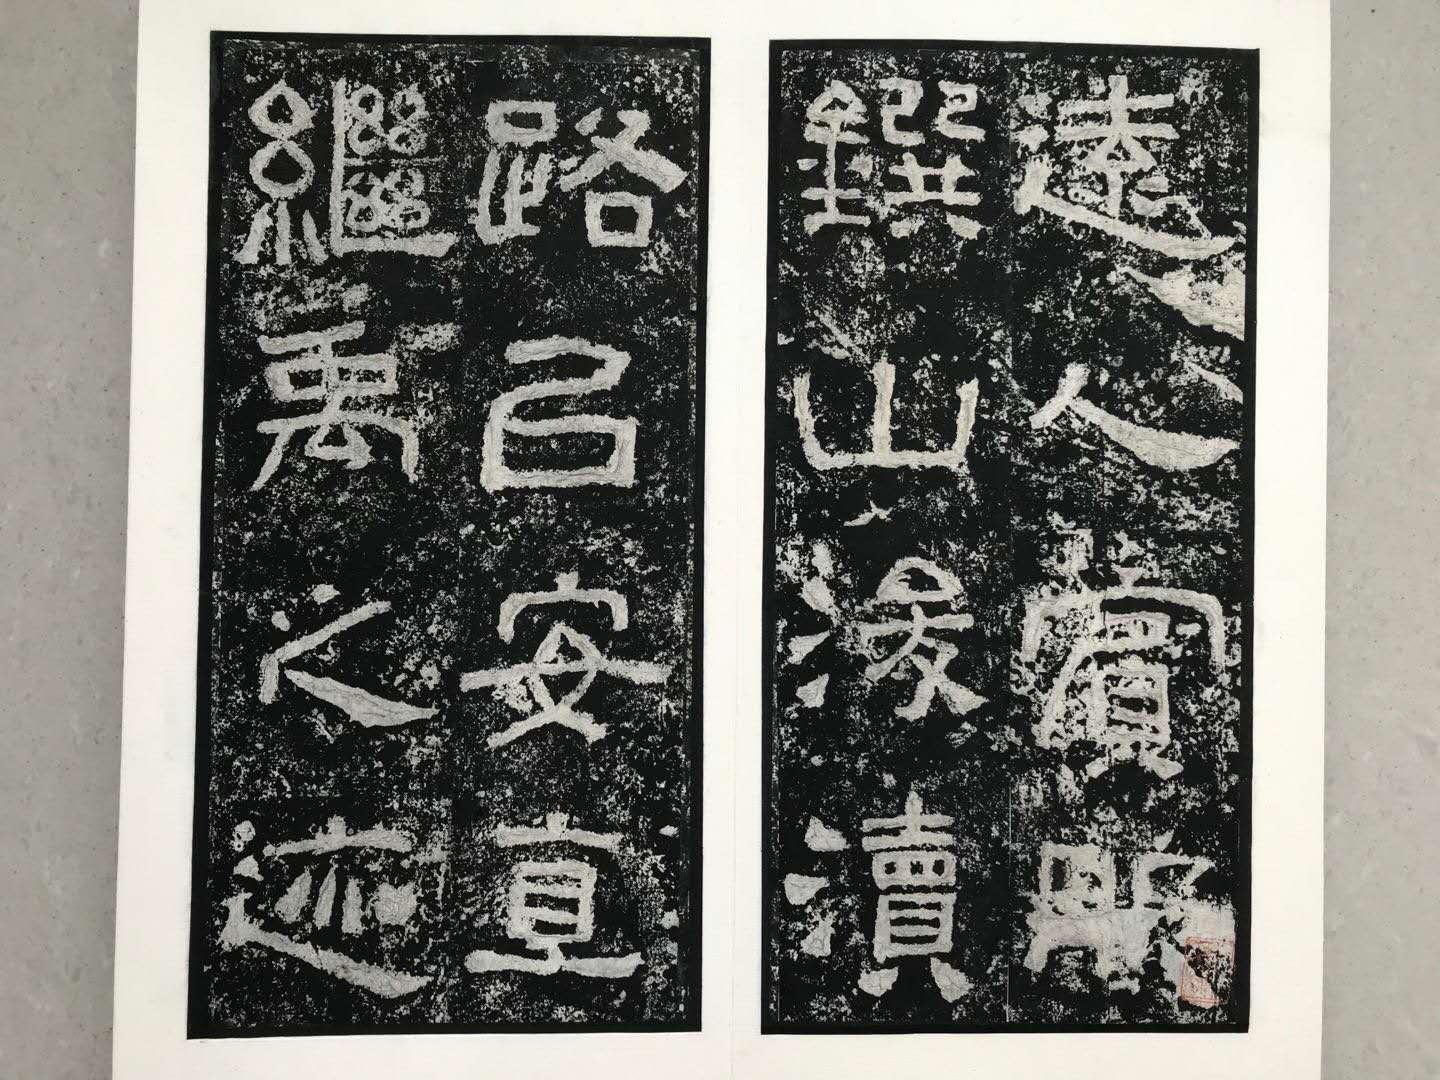 遠人賓服
鐉山浚瀆
路㠯安直
繼禹之迹